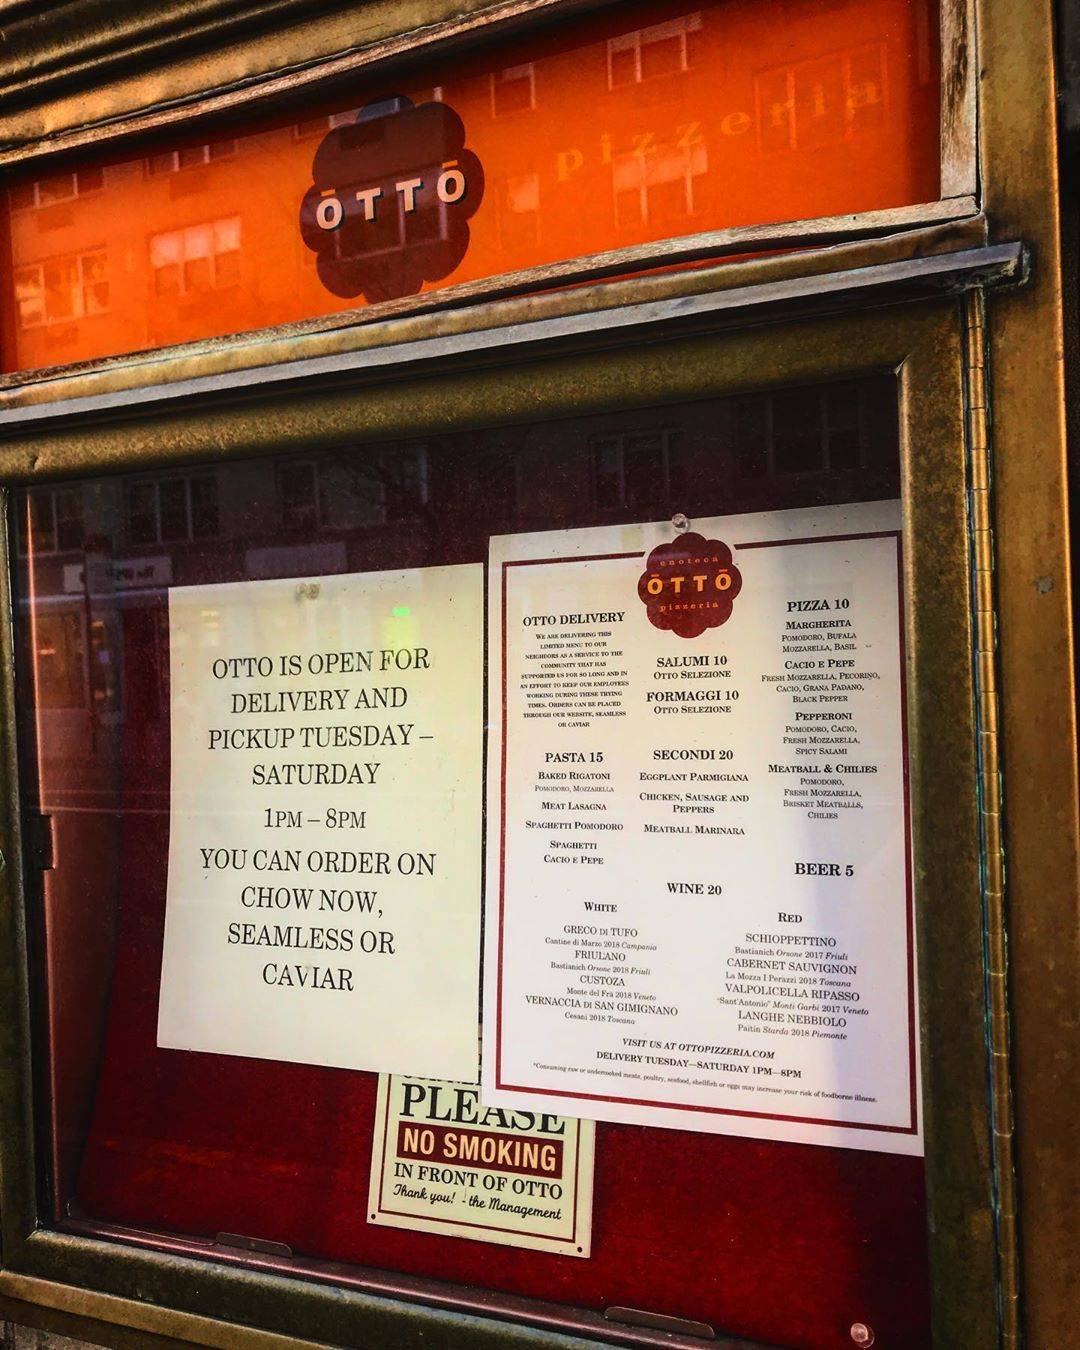 ŌTTŌ
pizzeria
OTTO IS OPEN FOR
DELIVERY AND
PICKUP TUESDAY –
SATURDAY
1PM – 8PM
YOU CAN ORDER ON
CHOW NOW,
SEAMLESS OR
CAVIAR
enoteca
ŌTTŌ
pizzeria
OTTO DELIVERY
WE ARE DELIVERING THIS
LIMITED MENU TO OUR
NEIGHBORS AS A SERVICE TO THE
COMMUNITY THAT HAS
SUPPORTED US FOR SO LONG AND IN
AN EFFORT TO KEEP OUR EMPLOYEES
WORKING DURING THESE TRYING
TIMES. ORDERS CAN BE PLACED
THROUGH OUR WEBSITE, SEAMLESS
OR CAVIAR
SALUMI 10
OTTO SELEZIONE
FORMAGGI 10
OTTO SELEZIONE
PIZZA 10
MARGHERITA
POMODORO, BUFALA
MOZZARELLA, BASIL
CACIO E PEPE
FRESH MOZZARELLA, PECORINO,
CACIO, GRANA PADANO,
BLACK PEPPER
PEPPERONI
POMODORO, CACIO,
FRESH MOZZARELLA,
SPICY SALAMI
MEATBALL & CHILIES
POMODORO,
FRESH MOZZARELLA,
BRISKET MEATBALLS,
CHILIES
PASTA 15
BAKED RIGATONI
POMODORO, MOZZARELLA
MEAT LASAGNA
SPAGHETTI POMODORO
SPAGHETTI
CACIO E PEPE
SECONDI 20
EGGPLANT PARMIGIANA
CHICKEN, SAUSAGE AND
PEPPERS
MEATBALL MARINARA
BEER 5
WINE 20
WHITE
GRECO DI TUFO
Cantine di Marzo 2018 Campania
FRIULANO
Bastianich Orsone 2018 Friuli
CUSTOZA
Monte del Frà 2018 Veneto
VERNACCIA DI SAN GIMIGNANO
Cesani 2018 Toscana
RED
SCHIOPPETTINO
Bastianich Orsone 2017 Friuli
CABERNET SAUVIGNON
La Mozza I Perazzi 2018 Toscana
VALPOLICELLA RIPASSO
"Sant'Antonio" Monti Garbi 2017 Veneto
LANGHE NEBBIOLO
Paitin Starda 2018 Piemonte
VISIT US AT OTTOPIZZERIA.COM
DELIVERY TUESDAY—SATURDAY 1PM—8PM
*Consuming raw or undercooked meats, poultry, seafood, shellfish or eggs may increase your risk of foodborne illness.
PLEASE
NO SMOKING
IN FRONT OF OTTO
Thank you! - the Management